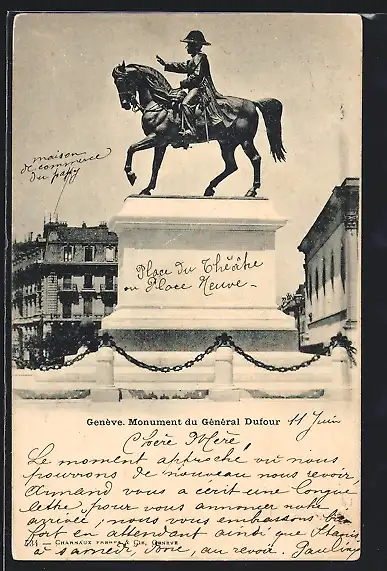 maison
de commerce
du papy
Place du Théâtre
ou Place Neuve
Genève. Monument du Général Dufour 11 Juin
Chère Mère,
Le moment approche où nous
pouvons de nouveau nous revoir,
Armand vous a écrit une longue
lettre pour vous annoncer notre
arrivée, nous vous embrassons bien
fort en attendant ainsi que
à samedi, donc, au revoir. Pauline
534 — Charnaux Frères & Cie, Genève